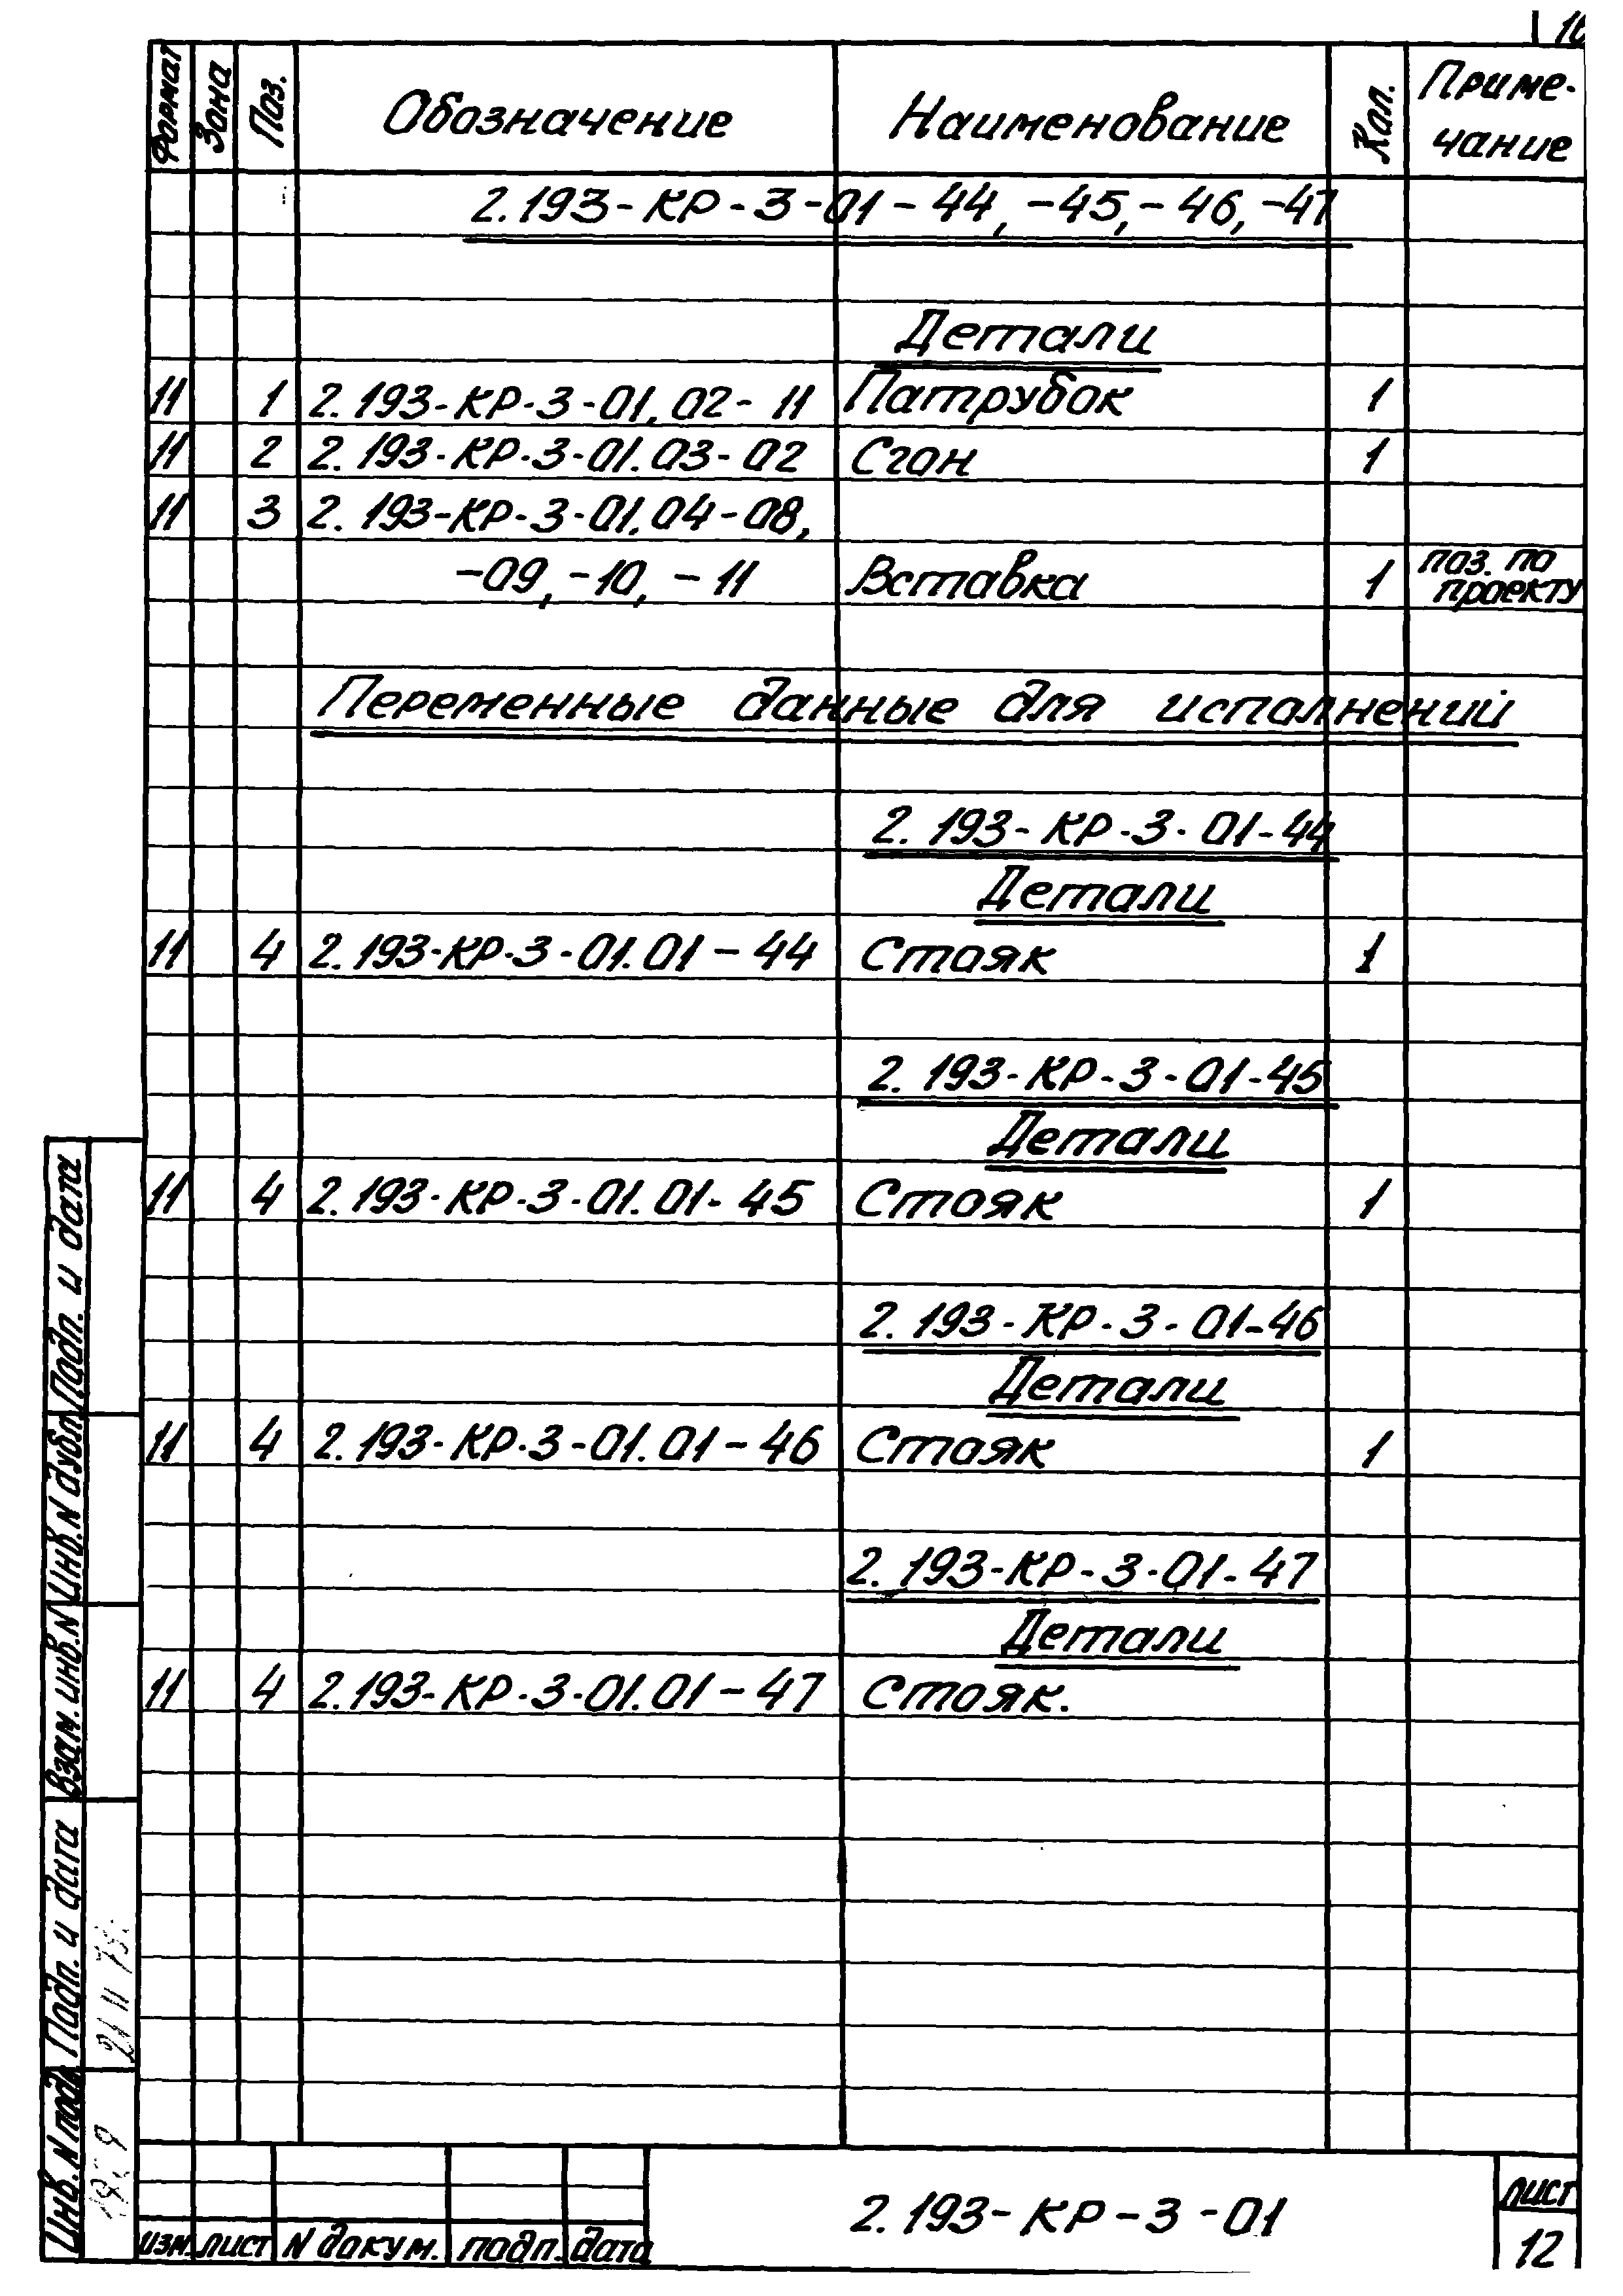 Формат Зона Поз. Обозначение Наименование Кол. Приме-
чание
2.193-КР-3-01-44, -45, -46, -47
Детали
11 1 2.193-КР-3-01.02-11 Патрубок 1
11 2 2.193-КР-3-01.03-02 Сгон 1
11 3 2.193-КР-3-01.04-08,
-09, -10, -11 Вставка 1 поз. по
проекту
Переменные данные для исполнений
2.193-КР-3-01-44
Детали
11 4 2.193-КР-3-01.01-44 Стояк 1
2.193-КР-3-01-45
Детали
11 4 2.193-КР-3-01.01-45 Стояк 1
2.193-КР-3-01-46
Детали
11 4 2.193-КР-3-01.01-46 Стояк 1
2.193-КР-3-01-47
Детали
11 4 2.193-КР-3-01.01-47 Стояк.
Подп. и дата
Инв. N дубл.
Взам. инв. N
Подп. и дата
21 11 75.
Инв. N подл.
изм. лист N докум. подп. дата
2.193-КР-3-01
лист
12